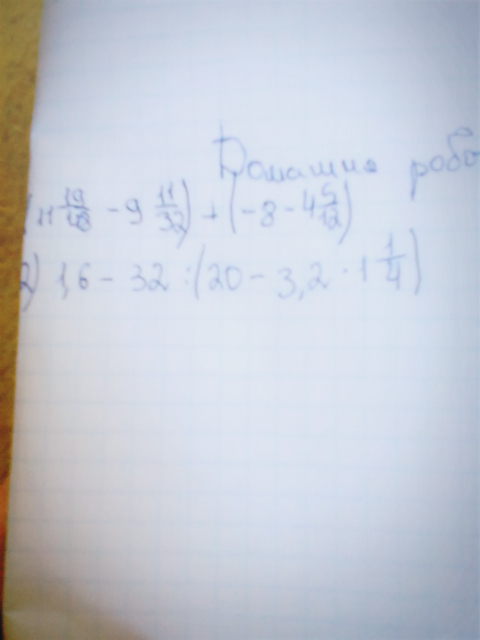 Домашня робо
(11 19/48 - 9 11/32) + (-8 - 4 5/12)
2) 1,6 - 32 : (20 - 3,2 · 1 1/4)